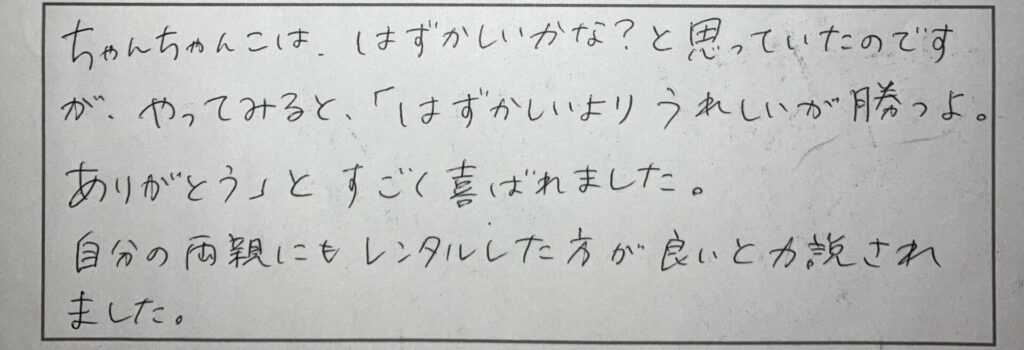 ちゃんちゃんこは、はずかしいかな?と思っていたのです
が、やってみると、「はずかしいより うれしいが勝つよ。
ありがとう」と すごく喜ばれました。
自分の両親にも レンタルした方が良いと力説され
ました。